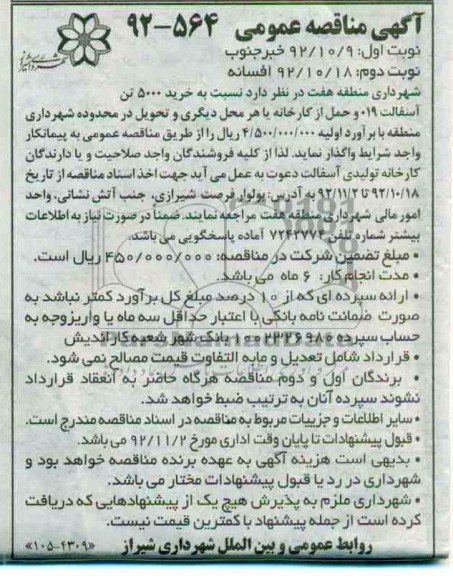 آگهی مناقصه عمومی ۵۶۴-۹۲
نوبت اول: ۹۲/۱۰/۹ خبرجنوب
نوبت دوم: ۹۲/۱۰/۱۸ افسانه
شهرداری منطقه هفت در نظر دارد نسبت به خرید ۵۰۰۰ تن
آسفالت ۰۱۹ و حمل از کارخانه یا هر محل دیگری و تحویل در محدوده شهرداری
منطقه با برآورد اولیه ۴/۵۰۰/۰۰۰/۰۰۰ ریال را از طریق مناقصه عمومی به پیمانکار
واجد شرایط واگذار نماید. لذا از کلیه فروشندگان واجد صلاحیت و یا دارندگان
کارخانه تولیدی آسفالت دعوت به عمل می آید جهت اخذ اسناد مناقصه از تاریخ
۹۲/۱۰/۱۸ تا ۹۲/۱۱/۲ به آدرس: بولوار فرصت شیرازی، جنب آتش نشانی، واحد
امور مالی شهرداری منطقه هفت مراجعه نمایند. ضمناً در صورت نیاز به اطلاعات
بیشتر شماره تلفن ۷۲۴۲۷۷۴ آماده پاسخگویی می باشد.
• مبلغ تضمین شرکت در مناقصه: ۴۵۰/۰۰۰/۰۰۰ ریال است.
• مدت انجام کار: ۶ ماه می باشد.
• ارائه سپرده ای که از ۱۰ درصد مبلغ کل برآورد کمتر نباشد به
صورت ضمانت نامه بانکی با اعتبار حداقل سه ماه یا واریز وجه به
حساب سپرده ۱۰۰۲۳۳۶۹۸۰ بانک شهر شعبه کارآندیش
• قرارداد شامل تعدیل و مابه التفاوت قیمت مصالح نمی شود.
• برندگان اول و دوم مناقصه هرگاه حاضر به انعقاد قرارداد
نشوند سپرده آنان به ترتیب ضبط خواهد شد.
• سایر اطلاعات و جزییات مربوط به مناقصه در اسناد مناقصه مندرج است.
• قبول پیشنهادات تا پایان وقت اداری مورخ ۹۲/۱۱/۲ می باشد.
• بدیهی است هزینه آگهی به عهده برنده مناقصه خواهد بود و
شهرداری در رد یا قبول پیشنهادات مختار می باشد.
• شهرداری ملزم به پذیرش هیچ یک از پیشنهادهایی که دریافت
کرده است از جمله پیشنهاد با کمترین قیمت نیست.
روابط عمومی و بین الملل شهرداری شیراز «۱۰۵-۴۳۰۹»